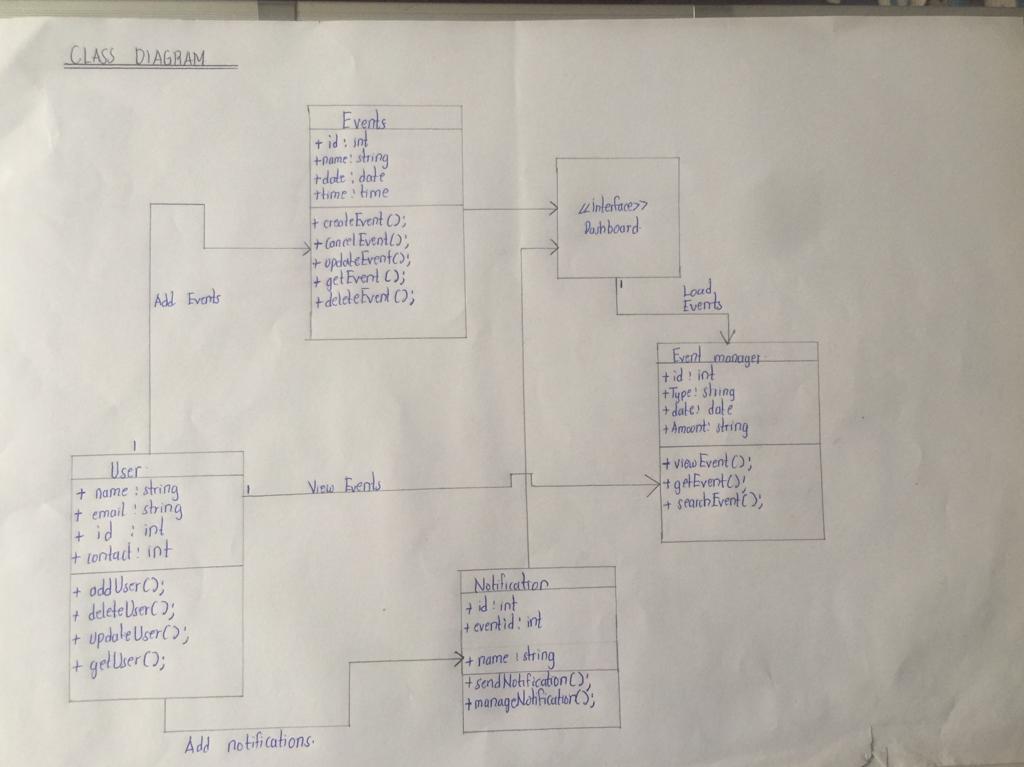 CLASS DIAGRAM
Events
+ id : int
+name : string
+date : date
+time : time
+ createEvent();
+ cancelEvent();
+ updateEvent();
+ getEvent ();
+ deleteEvent ();
<<interface>>
Dashboard
Add Events
1
Load
Events
Event manager
+ id : int
+Type : string
+ date : date
+Amount : string
+ viewEvent();
+ getEvent();
+ searchEvent();
1
User
+ name : string
+ email : string
+ id : int
+ contact : int
+ addUser();
+ deleteUser();
+ updateUser();
+ getUser();
1
View Events
Notification
+ id : int
+ eventid : int
+ name : string
+ sendNotification();
+ manageNotification();
Add notifications.